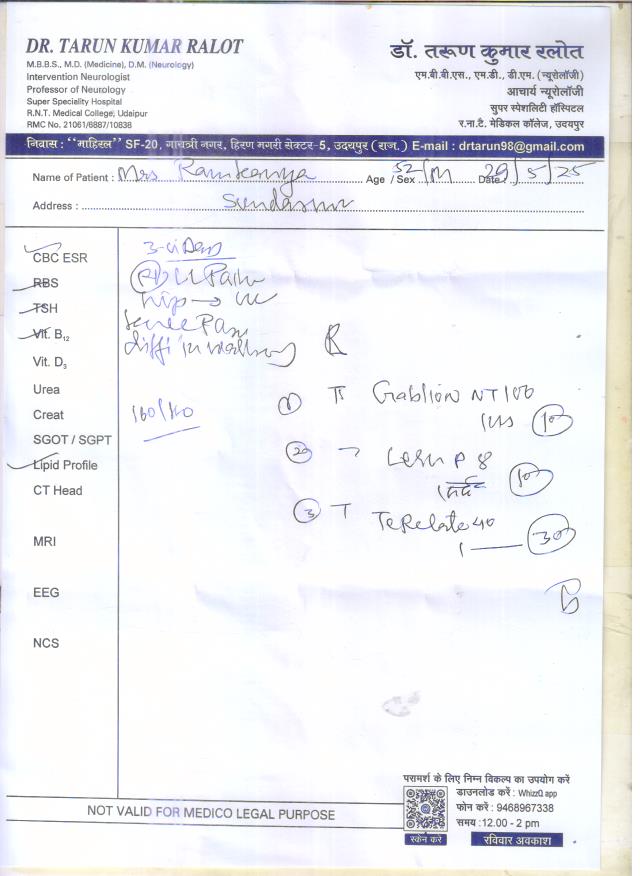 DR. TARUN KUMAR RALOT
M.B.B.S., M.D. (Medicine), D.M. (Neurology)
Intervention Neurologist
Professor of Neurology
Super Speciality Hospital
R.N.T. Medical College, Udaipur
RMC No. 21061/6887/10838
डॉ. तरूण कुमार रलोत
एम.बी.बी.एस., एम.डी., डी.एम. (न्यूरोलॉजी)
आचार्य न्यूरोलॉजी
सुपर स्पेशलिटी हॉस्पिटल
र.ना.टै. मेडिकल कॉलेज, उदयपुर
निवास : "माहिरल" SF-20, गायत्री नगर, हिरण मगरी सेक्टर-5, उदयपुर (राज.) E-mail : drtarun98@gmail.com
Name of Patient : Mrs Age / Sex 52/M Date 29/5/25
Address :
CBC ESR
RBS
TSH
Vit. B12
Vit. D3
Urea
Creat
SGOT / SGPT
Lipid Profile
CT Head
MRI
EEG
NCS
LL Pain
hip →
Pain
diffi in
R
1 T NT 100
10
P 8
10
3 T 40
1 —— 30
NOT VALID FOR MEDICO LEGAL PURPOSE
परामर्श के लिए निम्न विकल्प का उपयोग करें
डाउनलोड करें : WhizzQ app
फोन करें : 9468967338
समय : 12.00 - 2 pm
स्कैन करें
रविवार अवकाश